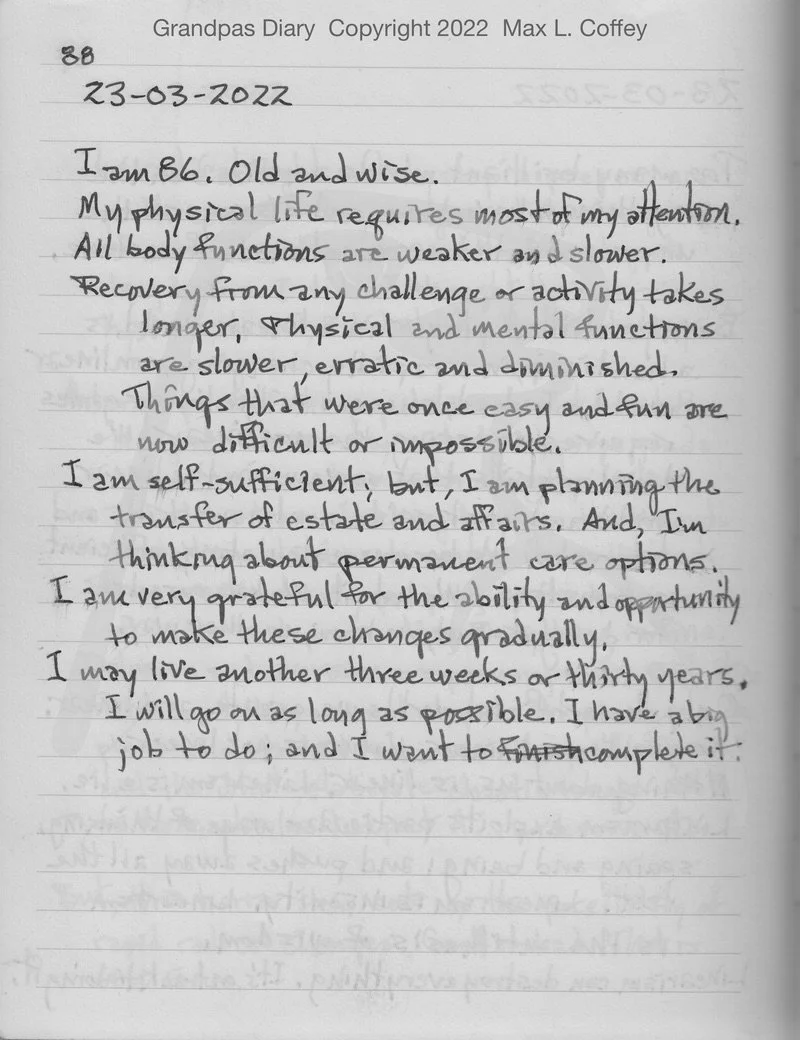 Grandpas Diary Copyright 2022 Max L. Coffey
38
23-03-2022
I am 86. Old and wise.
My physical life requires most of my attention.
All body functions are weaker and slower.
Recovery from any challenge or activity takes
longer. Physical and mental functions
are slower, erratic and diminished.
Things that were once easy and fun are
now difficult or impossible.
I am self-sufficient; but, I am planning the
transfer of estate and affairs. And, I'm
thinking about permanent care options.
I am very grateful for the ability and opportunity
to make these changes gradually.
I may live another three weeks or thirty years.
I will go on as long as possible. I have a big
job to do; and I want to finish complete it.